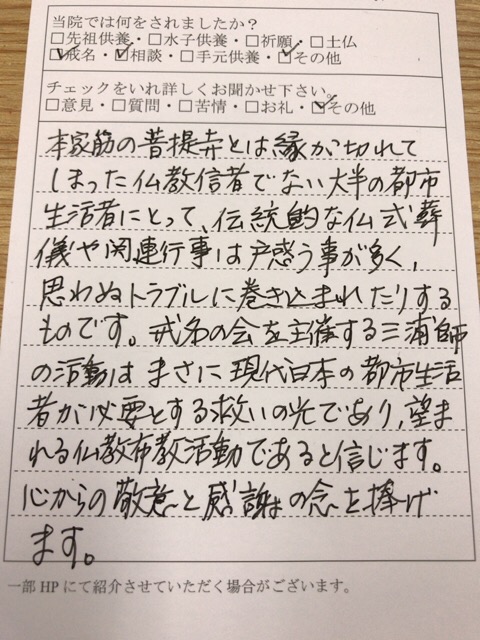 当院では何をされましたか？
□先祖供養・□水子供養・□祈願・□土仏
☑戒名・☑相談・□手元供養・☑その他
チェックをいれ詳しくお聞かせ下さい。
□意見・□質問・□苦情・□お礼・☑その他
本家筋の菩提寺とは縁が切れて
しまった仏教信者でない大半の都市
生活者にとって、伝統的な仏式葬
儀や関連行事は戸惑う事が多く、
思わぬトラブルに巻き込まれたりする
ものです。戒名の会を主催する三浦師
の活動はまさに現代日本の都市生活
者が必要とする救いの光であり、望ま
れる仏教布教活動であると信じます。
心からの敬意と感謝の念を捧げ
ます。
一部HPにて紹介させていただく場合がございます。